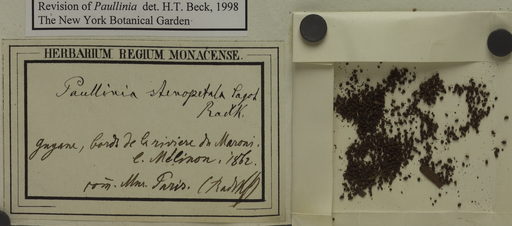 Revision of Paullinia det. H.T. Beck, 1998
The New York Botanical Garden
HERBARIUM REGIUM MONACENSE.
Paullinia stenopetala Sagot
Radlk.
Guyane, bords de la rivière du Maroni.
E. Mélinon, 1862.
com. Mus. Paris. (Radlk.)